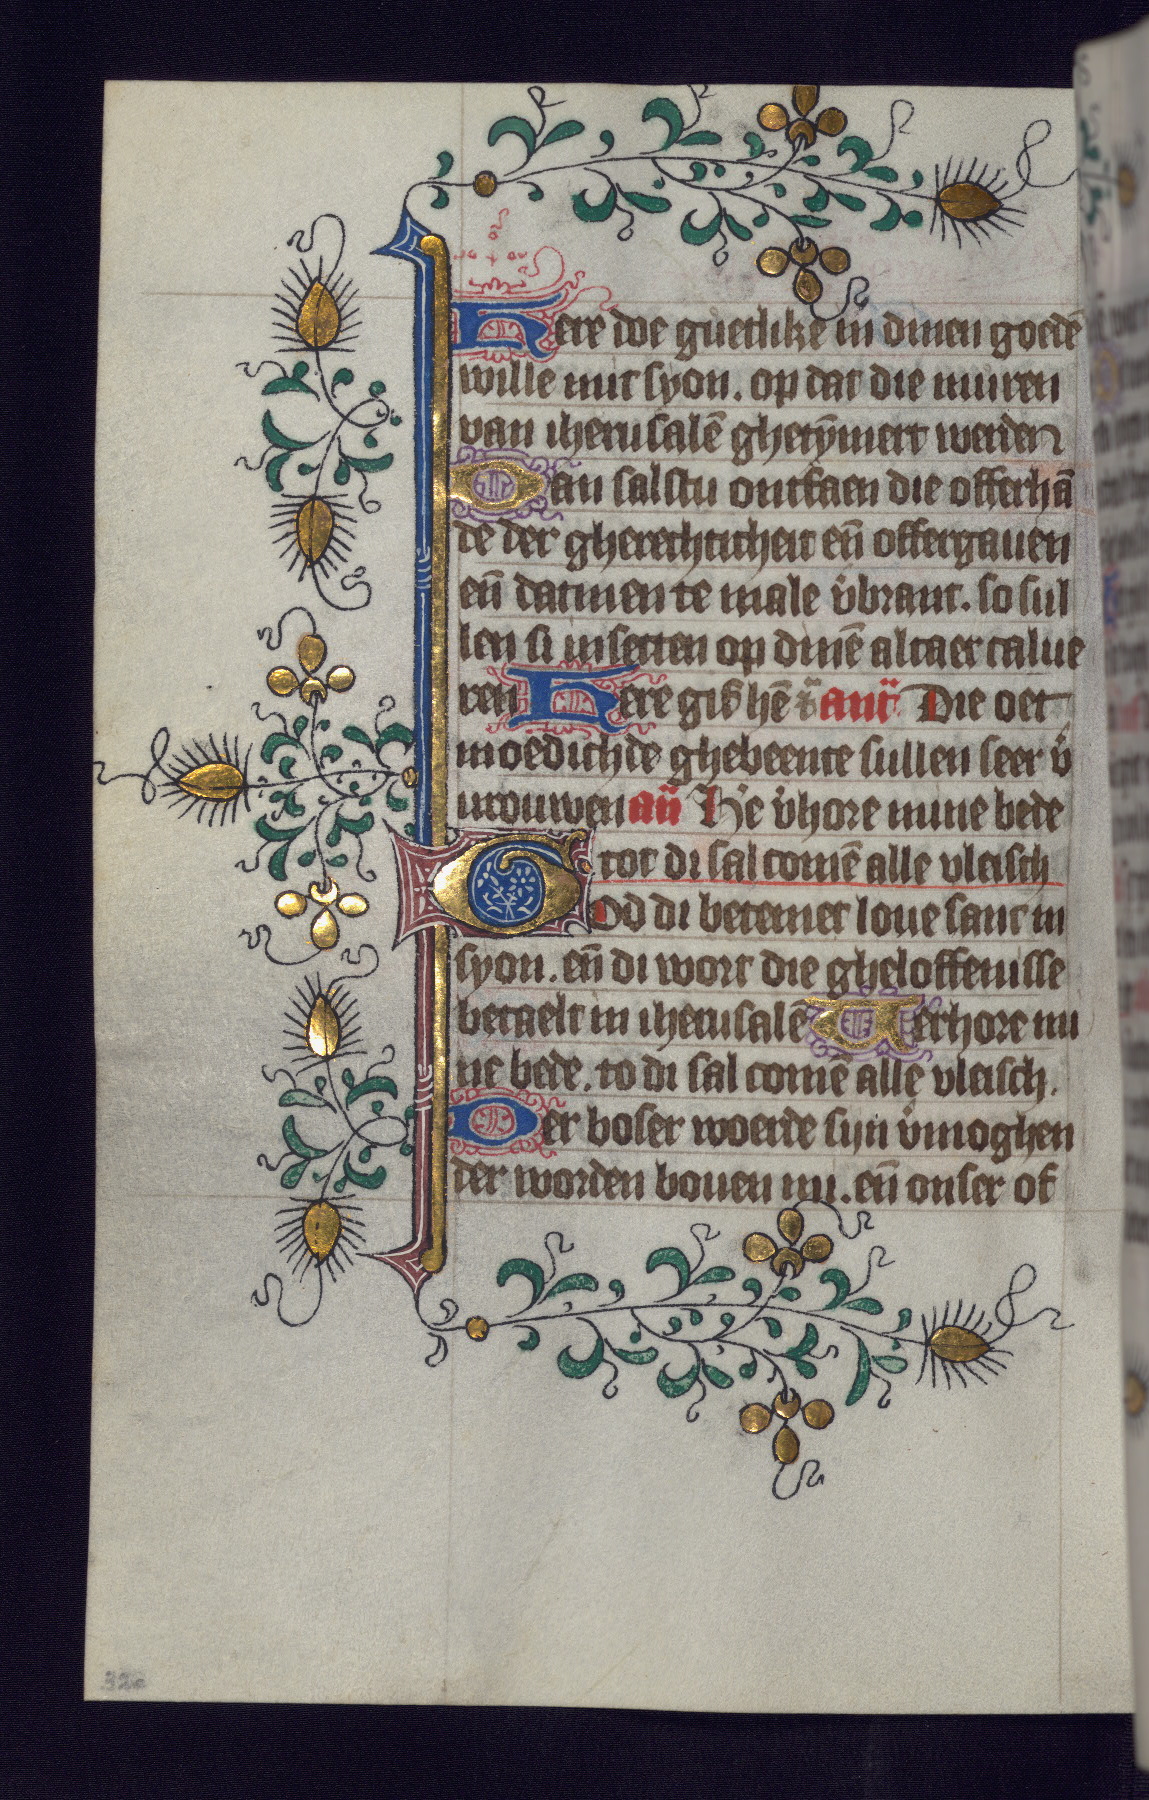 Here doe guetlike in dinen goedē
wille mit syon. op dat die muren
van iherusalē ghetȳmert werden
Dan salstu ontfaen die offerhā
de der gherechticheit eñ offergauen
eñ datmen te male v̓brant. so sul
len si insetten op dinē altaer calue
ren Here gif hē ān̄t Die oet
moedichde ghebeente sullen seer v̓
urouwen an̄ He v̓hore mine bede
tot di sal comē alle vleisch
God di betemet loue sanc in
syon. eñ di wort die gheloffenisse
betaelt in iherusalē Verhore mi
ne bede. to di sal comē alle vleisch.
Der boser woerde sijn v̓moghen
der worden bouen mi. eñ onser of